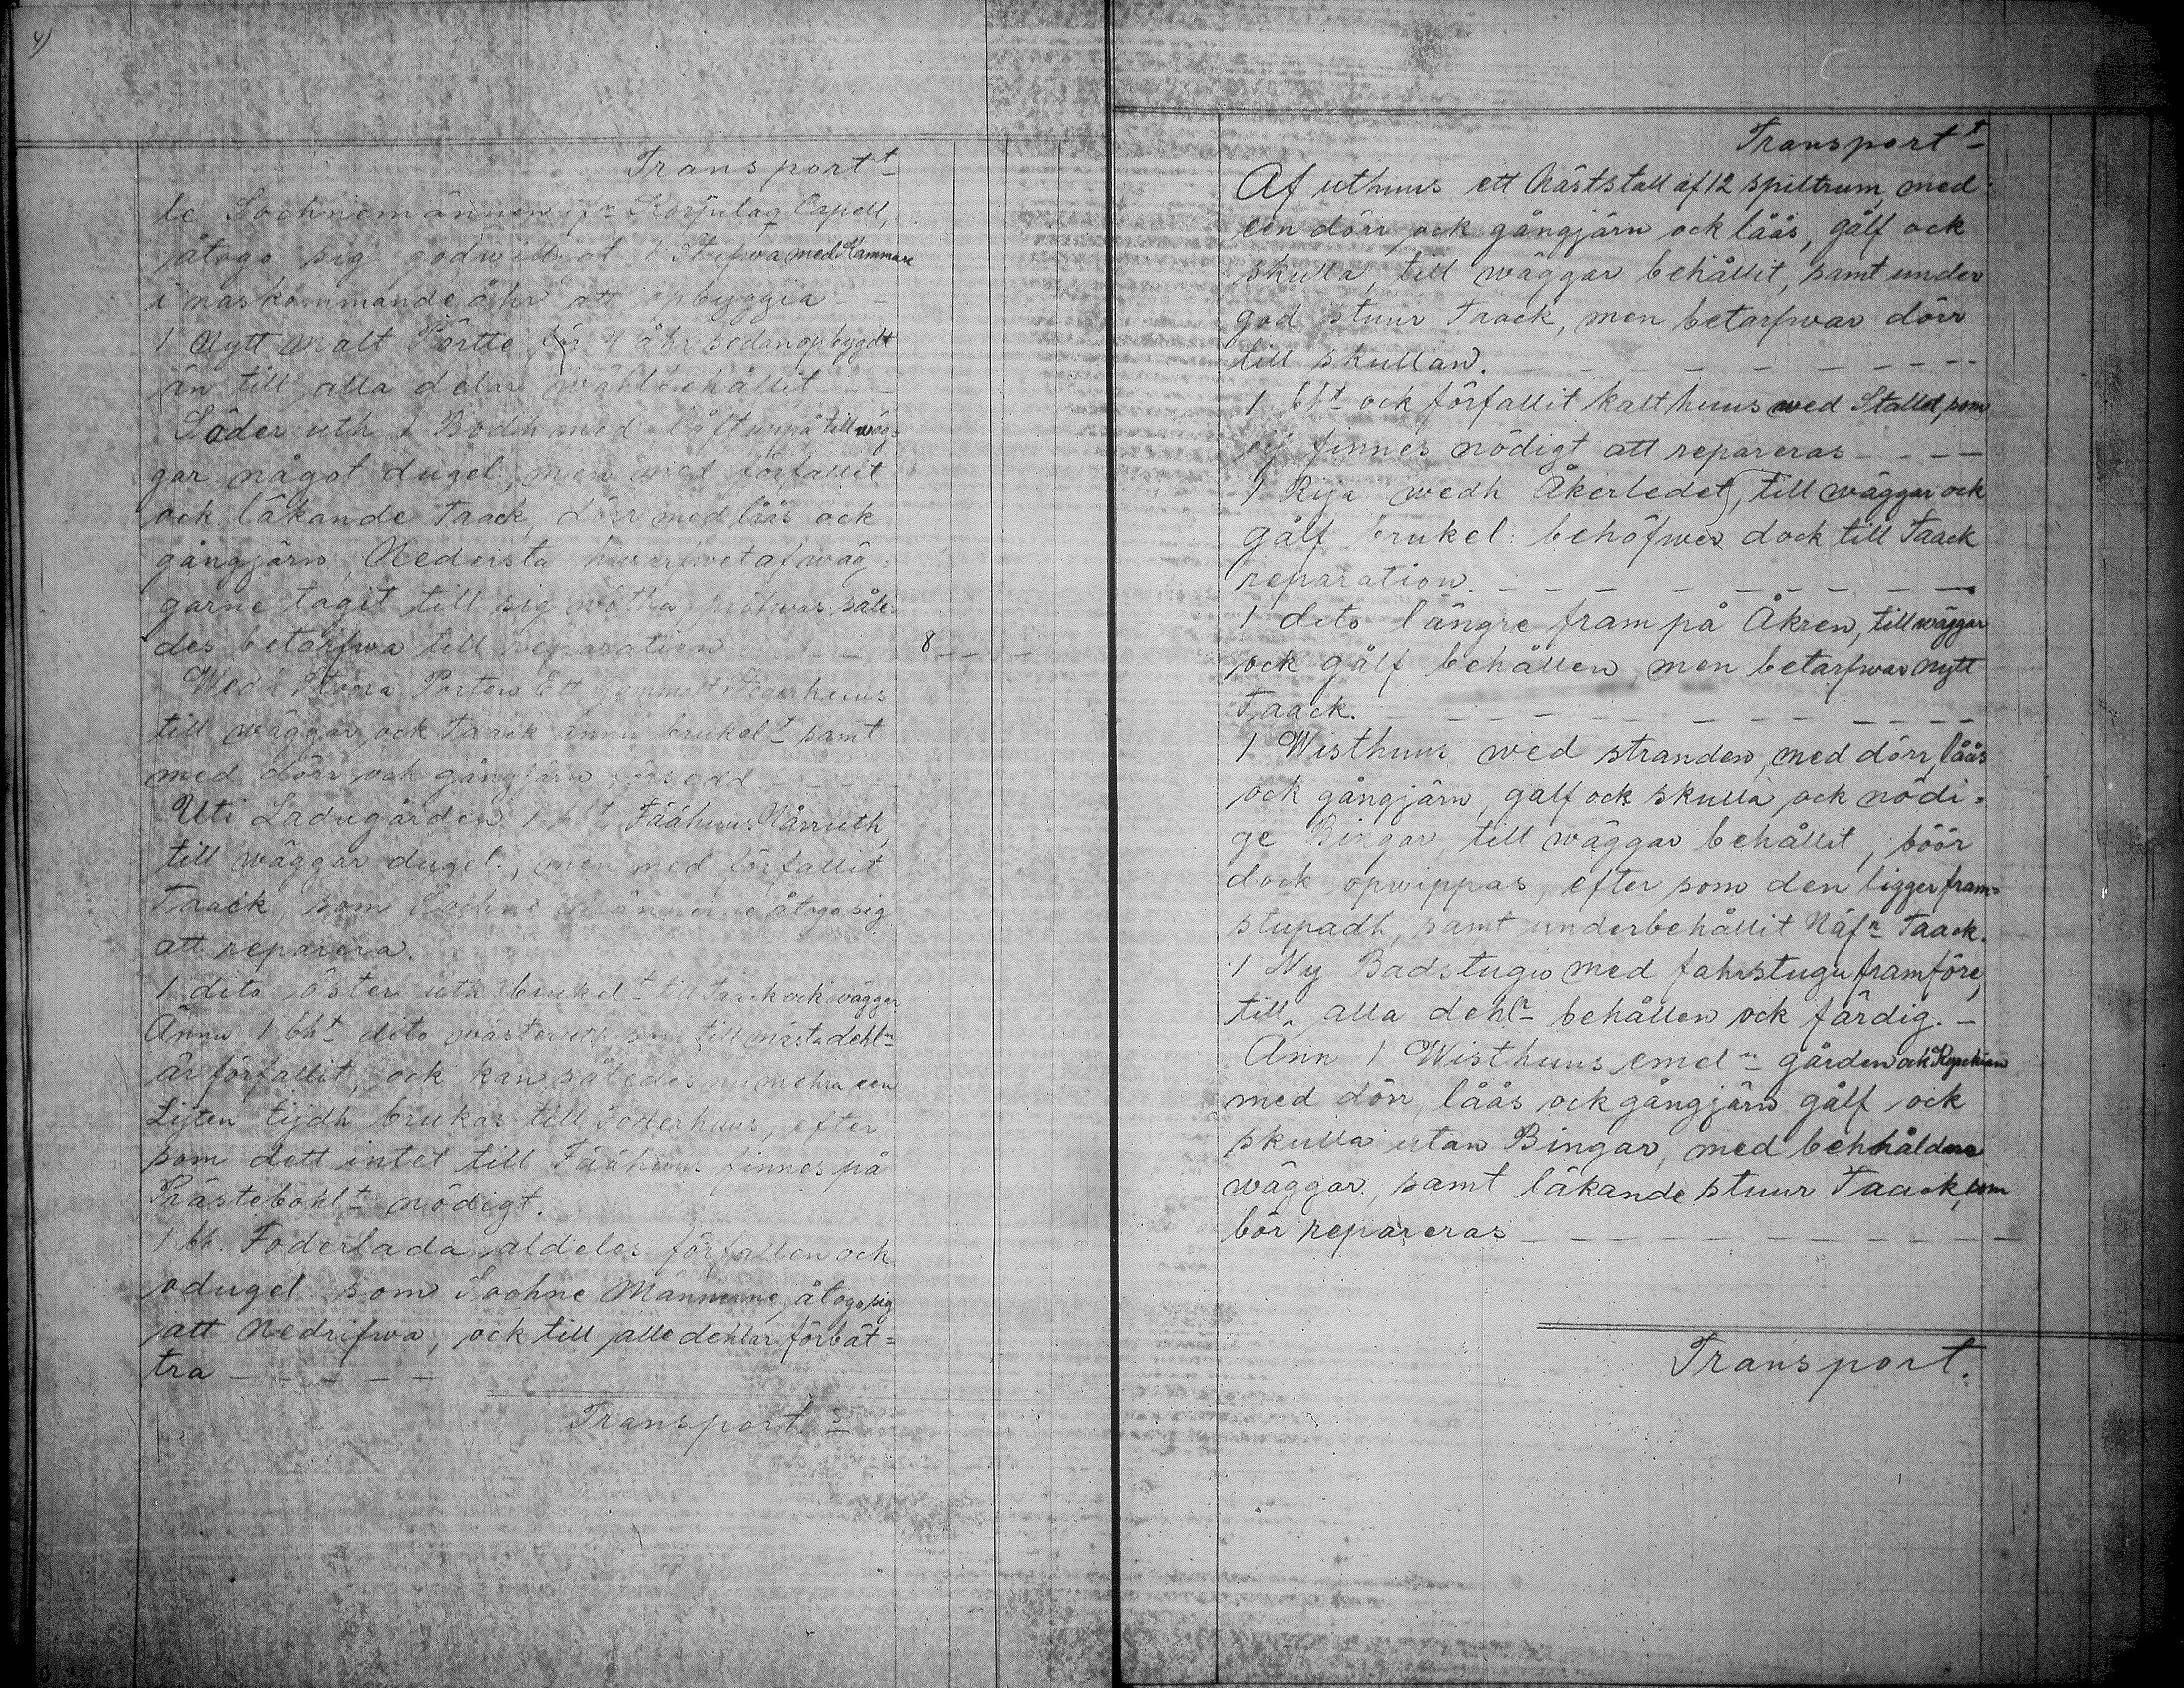 4)
Transportt
le Sochnemännen fn Korpilax Capell,
åtogo sig godwill.at 1 Stufwa med Kammare
i näskommande åhr att opbyggia
1 Nytt malt Pörtte för 4 åhr sedan opbygdt
än till alla delar wähl behållit
Söder uth 1 Bodh med låft ännå till wäg=
gar något dugel., men med förfallit
ock läkande Taack, dörr med låås ock
gångjärn, Nedersta hwarfwet af wäg=
garne tagit till sig rötha, pröfwas såle=
des betarfwa till reparation — — 8 — — —
Wed Stoora Porten Ett gammalt huus
till wäggar ock Taack ännu brukelt samt
med dörr ock gångjärn försedd
Uti Ladugården 1 bht Fäähuus Norruth,
till wäggar dugel., men med förfallit
Taack, som Sochne Männerne åtogo sig
att reparera.
1 dito öster uth brukelt till Taack ock wäggar
Ännu 1 bht dito wäster uth som till mästa dehln
är förfallit, ock kan således nu mehra een
Lijten tijdh brukas till Foderhuus, efter
som dett intet till Fäähuus finnes på
Prästebohlt nödigt.
1 bh. Foderlada aldeles förfallen ock
odugel som Sochne Männerne, åtogo sig
att Nedrifwa, ock till alle dehlar förbät=
tra — — — — —
Transport
Transportt
Af uthuus ett Häststall af 12 spiltrum, med
een dörr ock gångjärn ock låås, gålf ock
skulla, till wäggar behållit, samt under
god stuur Taack, men betarfwar dörr
till skullan. — — — — — — — — —
1 bht ock förfallit kalthuus wed Stalld, som
ej finnes nödigt att repareras — — — —
1 Rija wedh Åkerledet, till wäggar ock
gålf brukel: behöfwer dock till Taack
reparation. — — — — — — — — —
1 dito längre fram på Åkren, till wäggar
ock gålf behållen, men betarfwar nytt
Taack. — — — — — — — — — —
1 Wisthuus wed stranden, med dörr, låås
ock gångjärn, galf ock skulla ock nödi=
ge Bingar, till wäggar behållit, böör
dock opwippas, efter som den ligger fram=
stupadh, samt under behållit Näfn Taack.
1 Ny Badstugu med fahrstugu framföre,
till alla dehlr behållen ock färdig. —
Änn 1 Wisthuus emeln gården ock Kyrckian
med dörr, låås ock gångjärn gålf ock
skulla utan Bingar, med behhåldne
wäggar, samt läkande stuur Taack, som
bör repareras — — — — — — — — —
Transport.